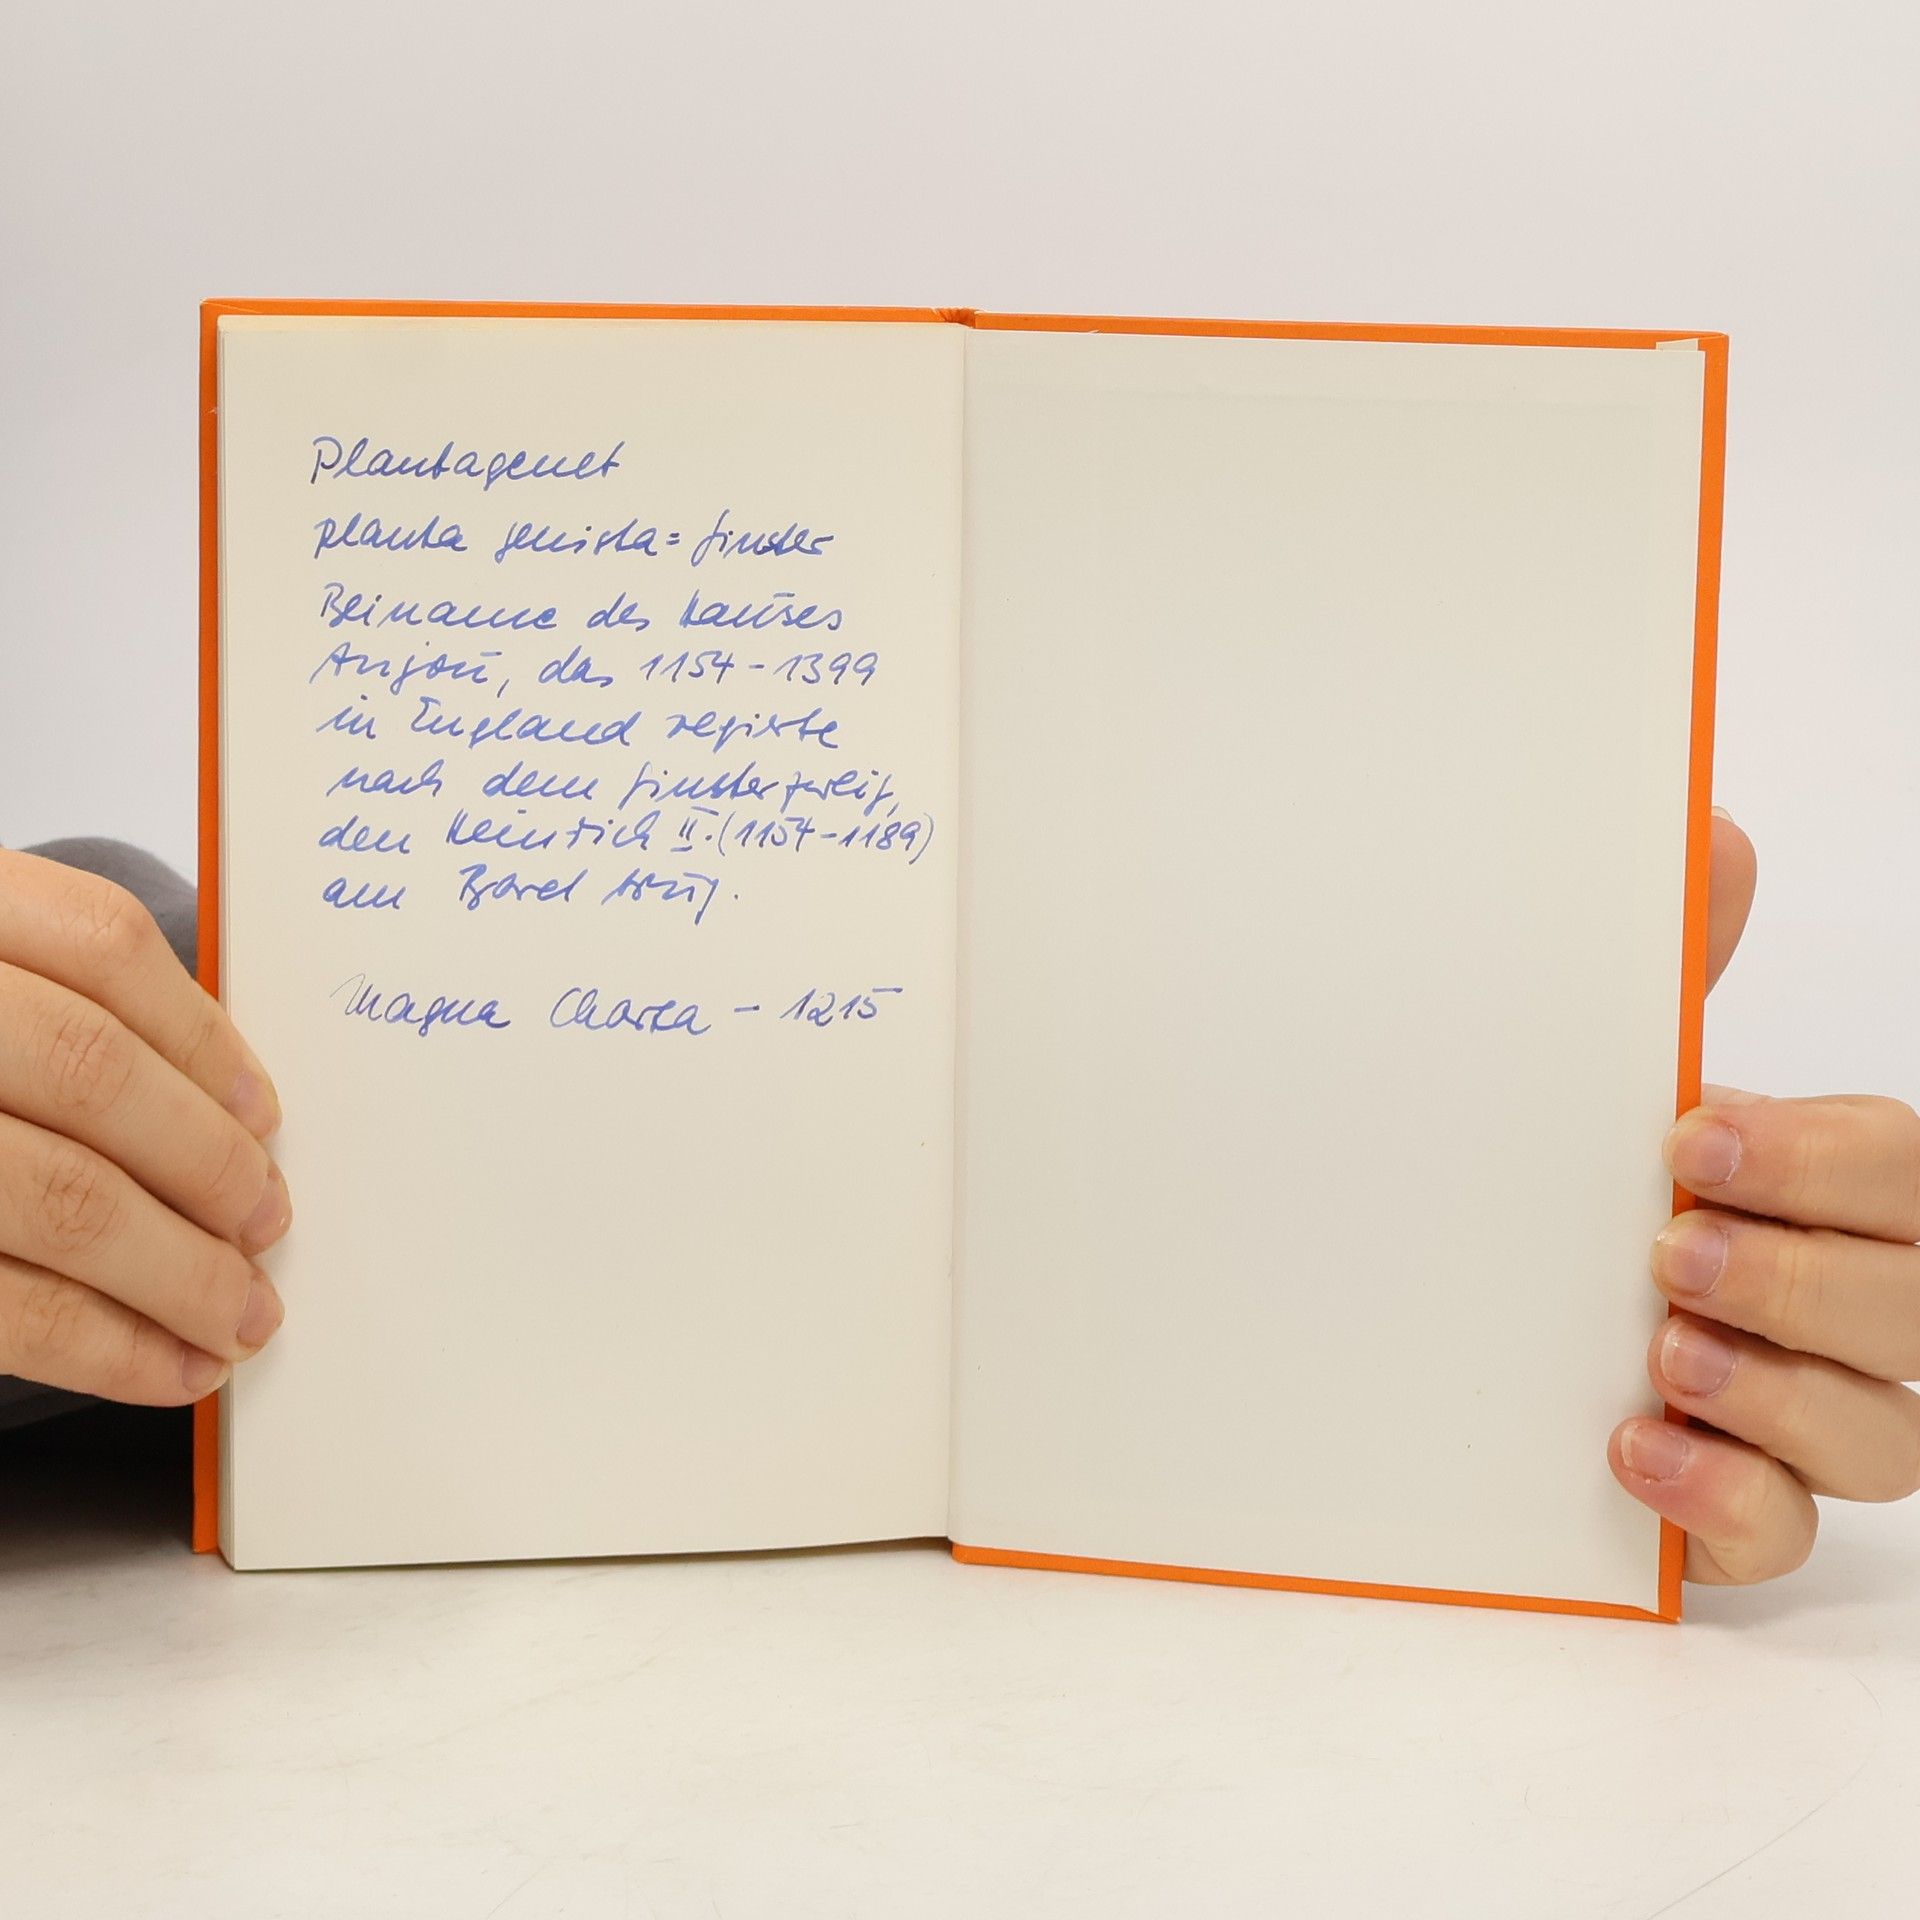 Plantagenet
planta genista = Ginster
Beiname des Hauses
Anjou, das 1154 - 1399
in England regierte
nach dem Ginsterzweig,
den Heinrich II. (1154-1189)
am Baret trug.
Magna Charta - 1215